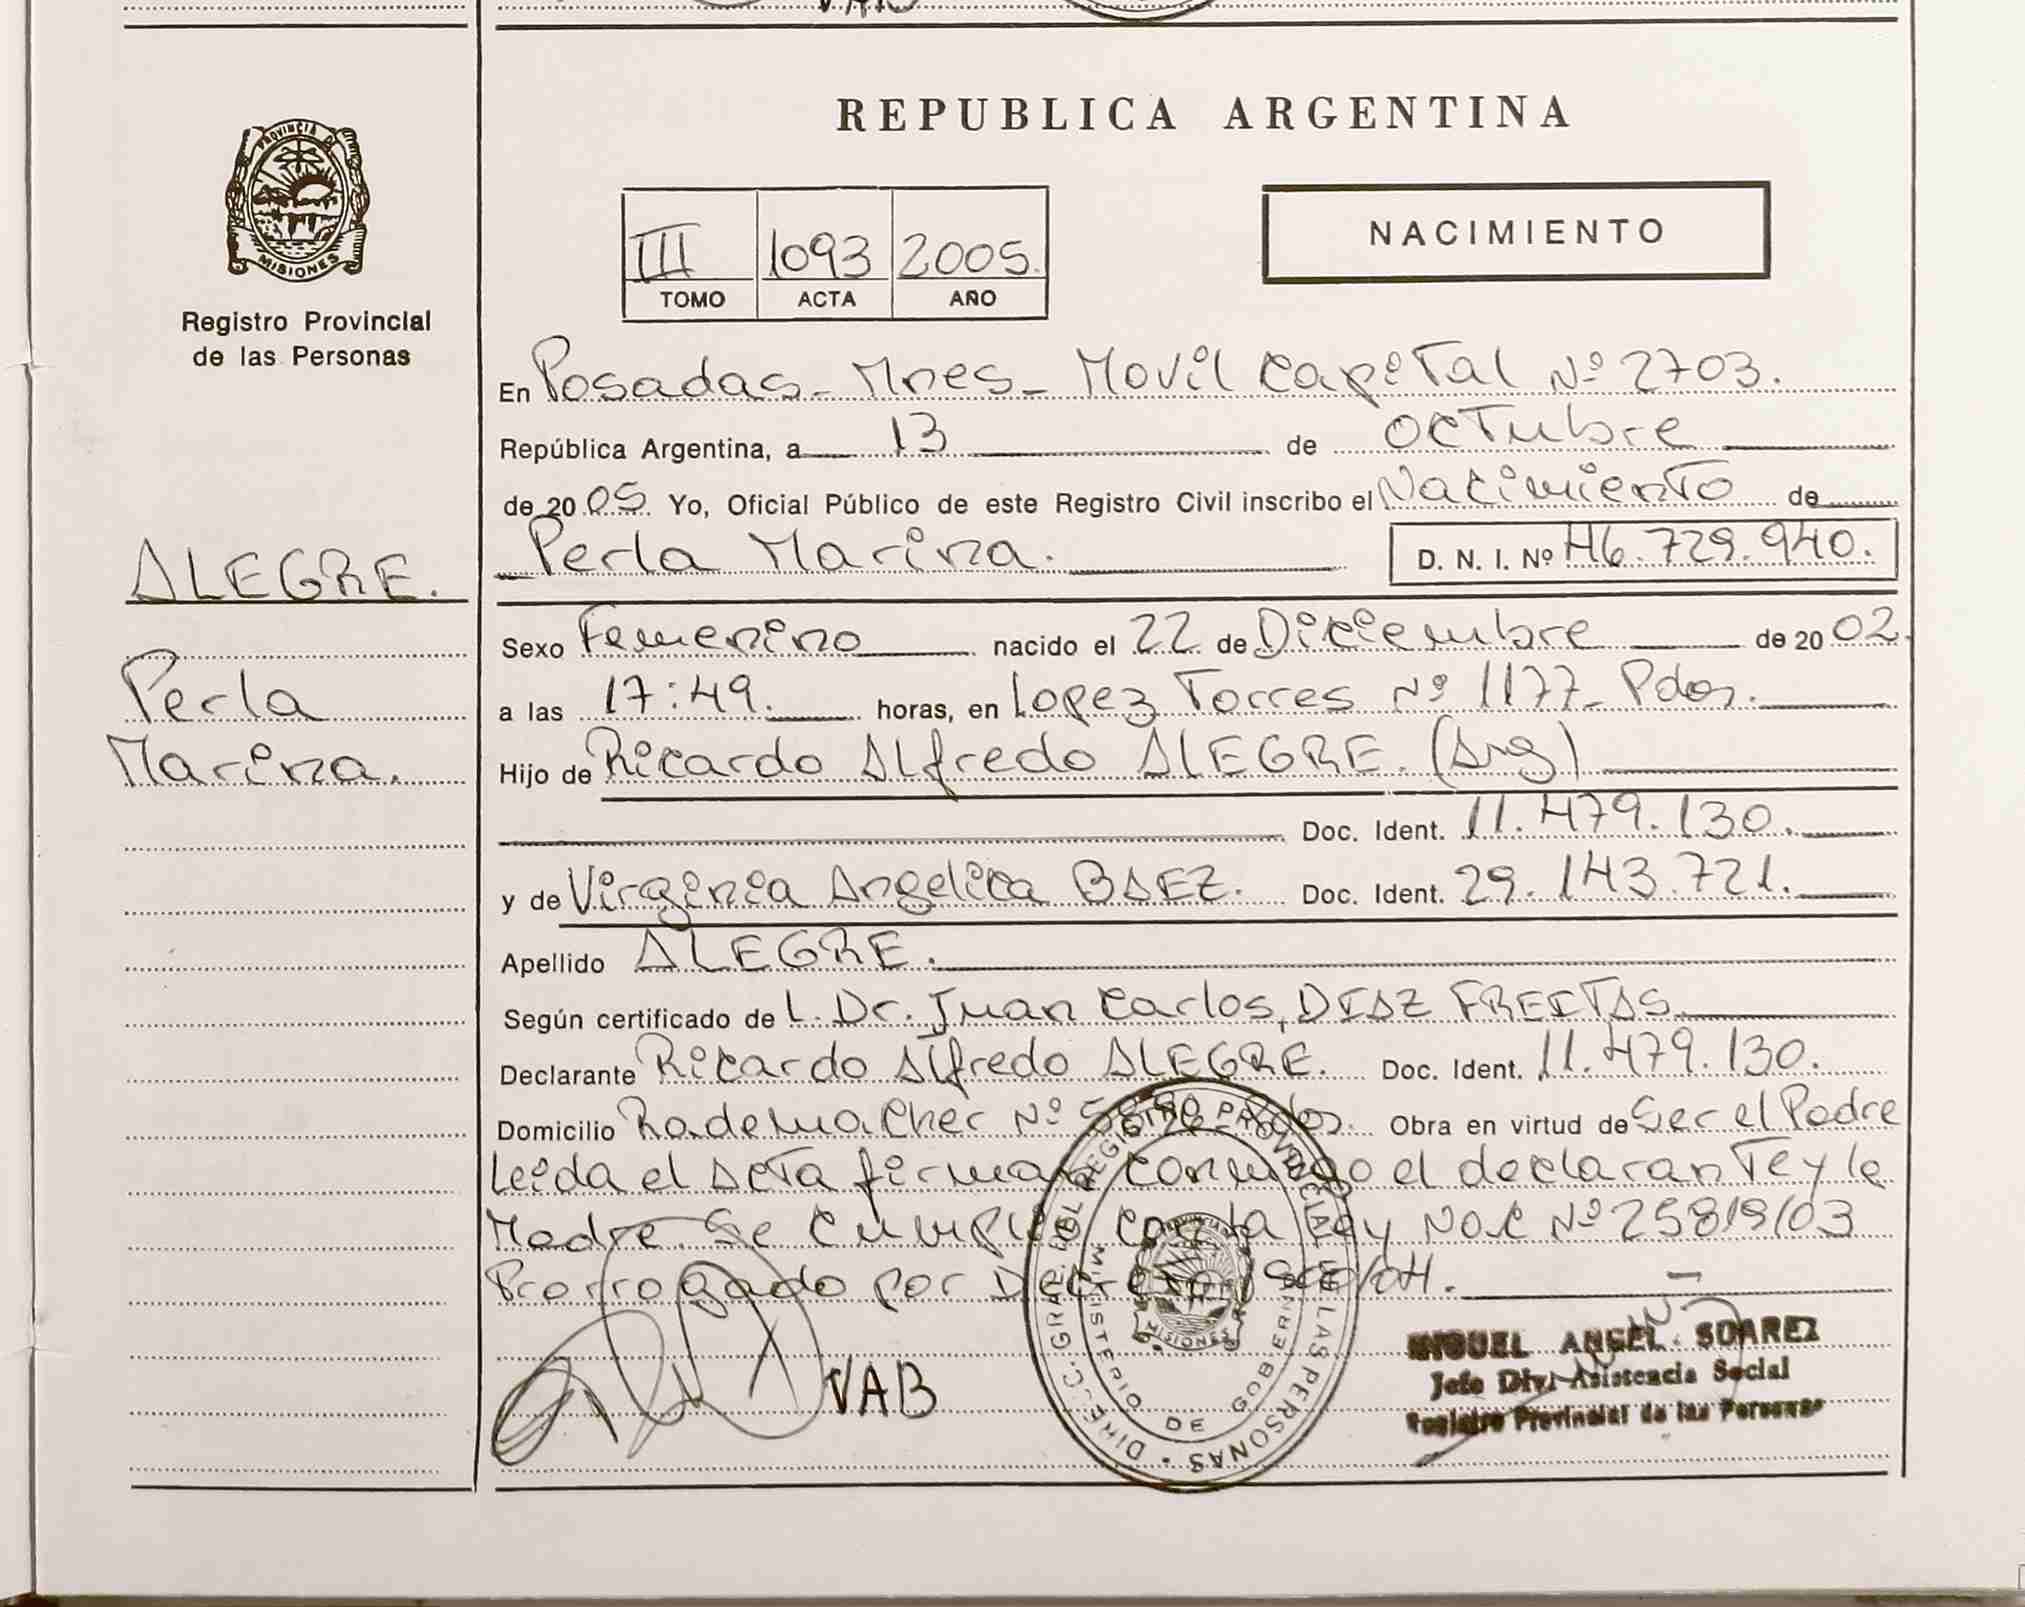 PROVINCIA DE
MISIONES
Registro Provincial
de las Personas
ALEGRE.
Perla
Marina.
REPUBLICA ARGENTINA
III 1093 2005.
TOMO ACTA AÑO
NACIMIENTO
En Posadas - Mnes - Movil Capital Nº 2703.
República Argentina, a 13 de Octubre
de 2005. Yo, Oficial Público de este Registro Civil inscribo el Nacimiento de
Perla Marina. D. N. I. Nº 46.729.940.
Sexo Femenino nacido el 22 de Diciembre de 2002.
a las 17:49. horas, en Lopez Torres Nº 1177- Pdas.
Hijo de Ricardo Alfredo ALEGRE. (Arg)
Doc. Ident. 11.479.130.
y de Virginia Angelica BAEZ. Doc. Ident. 29.143.721.
Apellido ALEGRE.
Según certificado de L. Dr. Juan Carlos, DIAZ FREITAS
Declarante Ricardo Alfredo ALEGRE. Doc. Ident. 11.479.130.
Domicilio Rademacher Nº Pdas. Obra en virtud de Ser el Padre
Leida el Acta firman conmigo el declarante y la
Madre. Se Cumplio con la Ley Nac Nº 25819/03
Prorrogado por Decreto /04.
VAB
DIREC. GRAL. DEL REGISTRO PROVINCIAL DE LAS PERSONAS
MINISTERIO DE GOBIERNO
MISIONES
MIGUEL ANGEL SUAREZ
Jefe Div. Asistencia Social
Registro Provincial de las Personas